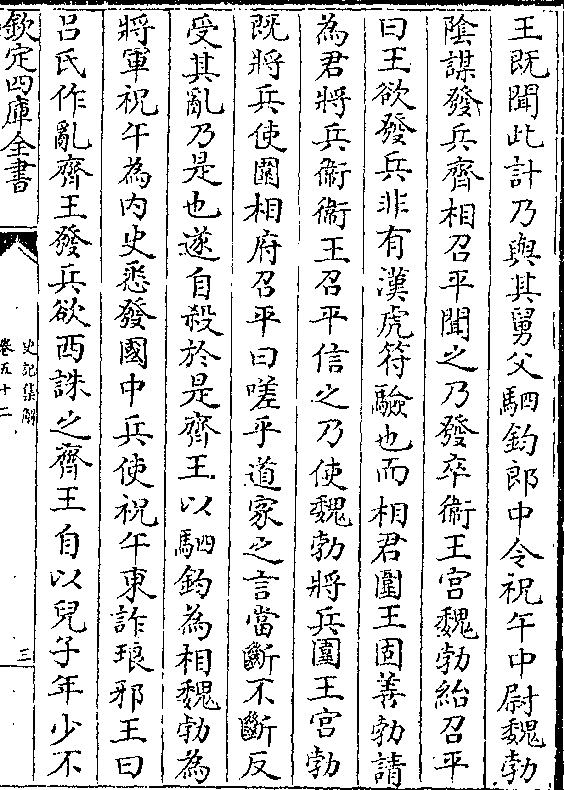 王既聞此計乃與其舅父駟鈞郎中令祝午中尉魏勃
隂謀發兵齊相召平聞之乃發卒衞王宮魏勃紿召平
曰王欲發兵非有漢虎符驗也而相君圍王固善勃請
為君將兵衞衞王召平信之乃使魏勃將兵圍王宮勃
既將兵使圍相府召平曰嗟乎道家之言當斷不斷反
受其亂乃是也遂自殺於是齊王以駟鈞為相魏勃為
將軍祝午為內史悉發國中兵使祝午東詐琅邪王曰
呂氏作亂齊王發兵欲西誅之齊王自以兒子年少不
欽定四庫全書
史記集解
卷五十二
三